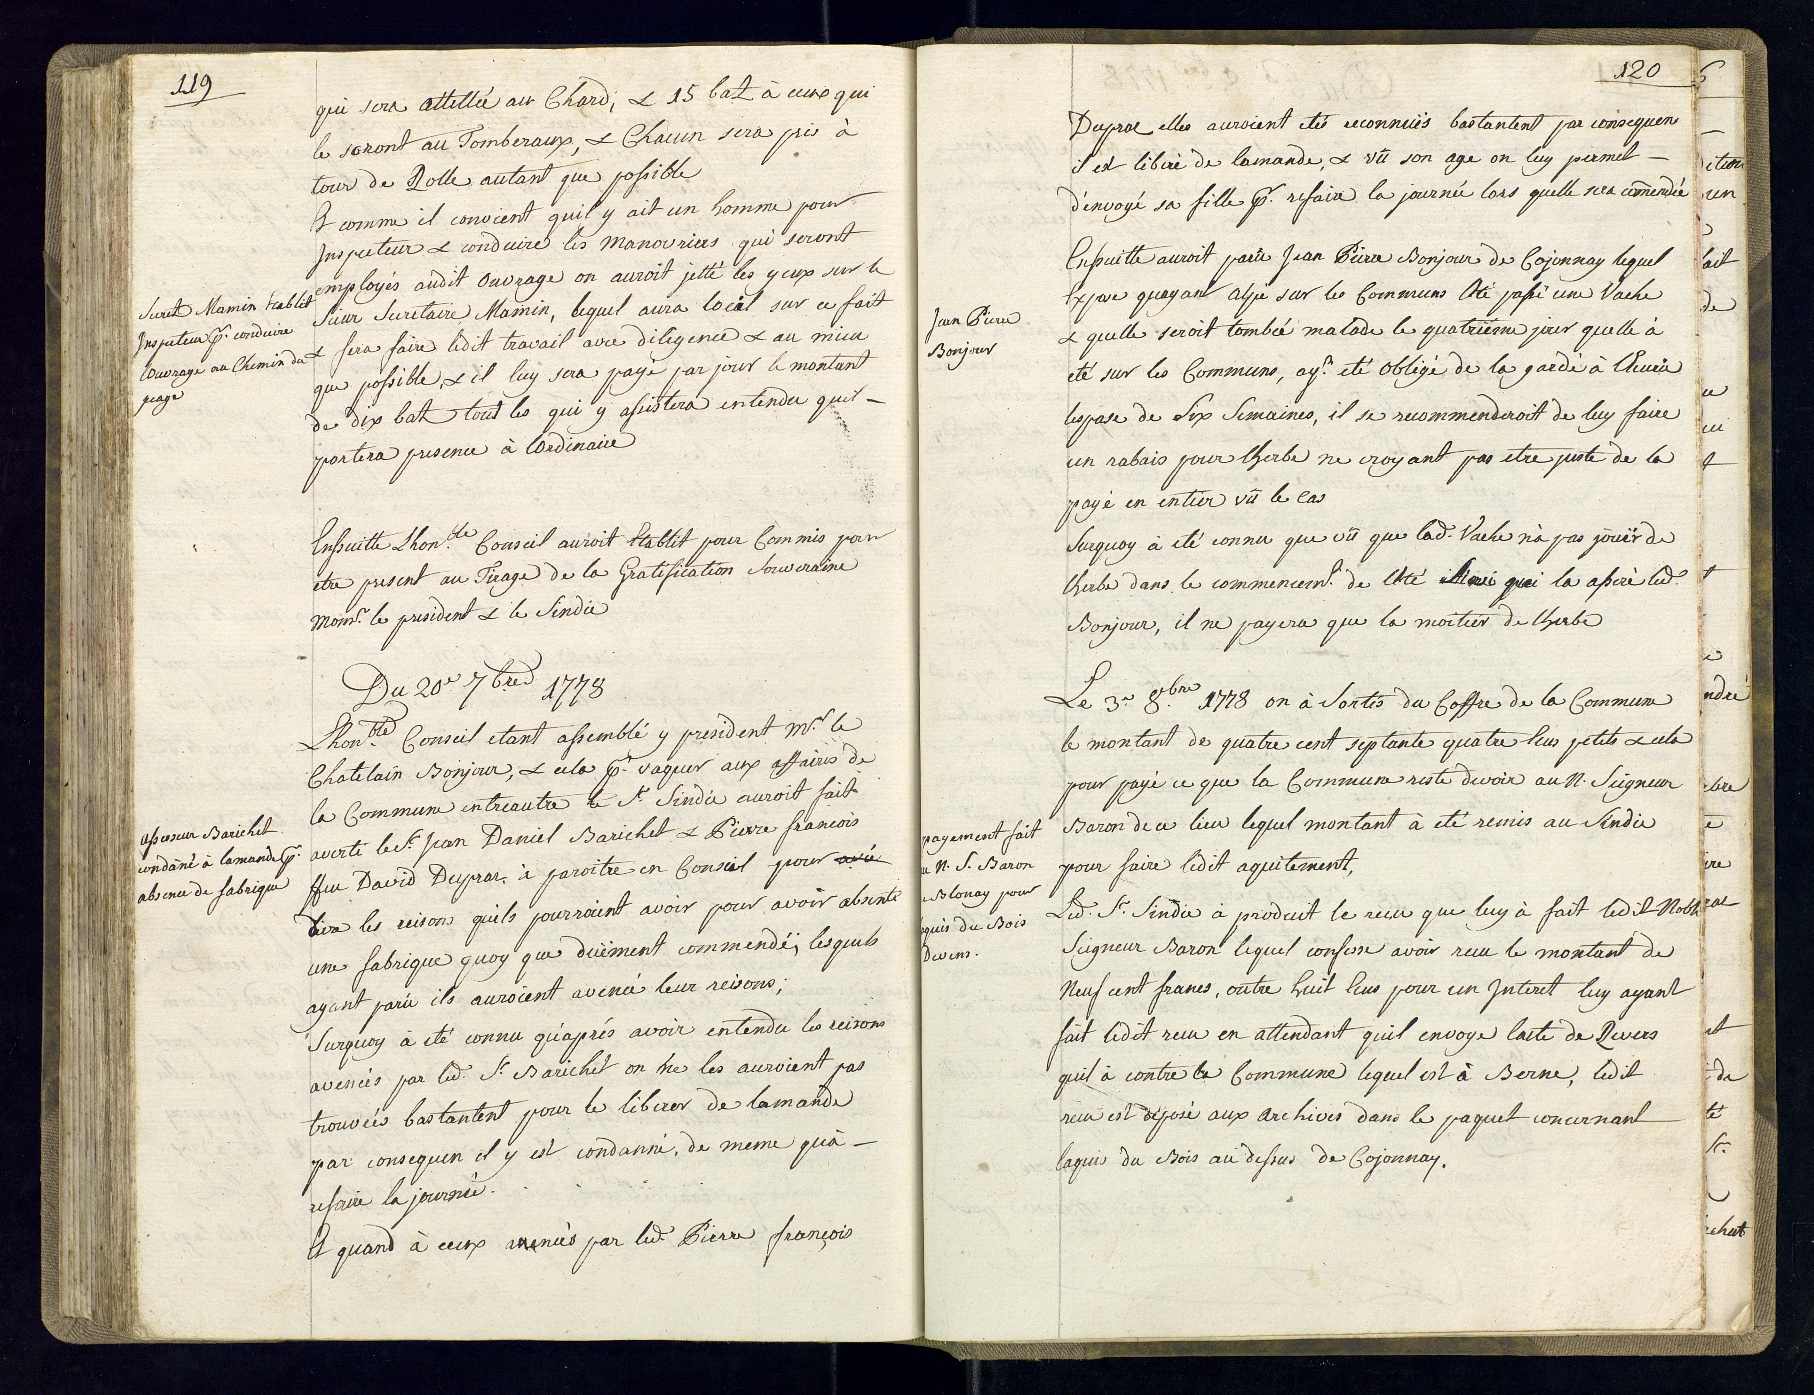 119
qui sera attellée au Chard, & 15 batz à ceux qui
le seront au Tomberaux, & Chacun sera pris à
tour de Rolle autant que possible
Et comme il convient quil y ait un homme pour
Inspecteur & conduire les manouvriers qui seront
employés audit ouvrage on auroit jetté les yeux sur le
Sieur Secretaire Mamin, lequel aura locil sur ce fait
& fera faire ledit travail avec diligence & au mieu
que possible, & il luy sera payé par jour le montant
de dix batz tout les qui y assistera entendu quil
portera presence à lordinaire
Secret. Mamin Etablit
Inspecteur pr. conduire
louvrage au Chemin du
peage
Ensuitte Lhonble Conseil auroit Etablit pour Commis pour
etre present au Tirage de la Gratification Souveraine
Monsr. le president & le Sindic
Du 20e 7bre 1778
Lhonble Conseil etant assemblé y president Mr. le
Chatelain Bonjour, & cela pr. vaquer aux affaires de
la Commune entreautre le Sr. Sindic auroit fait
averti le Sr. Jean Daniel Barichet & Pierre francois
ffeu David Dupraz à paroitre en Conseil pour
les reison quils pourroient avoir pour avoir absenté
une fabrique quoy que düement commendé, lesquels
ayant parüe ils auroient avencé leur reisons;
Surquoy à eté connu qu'aprés avoir entendu les reisons
avencés par led. Sr. Barichet on ne les auroient pas
trouvées bastantent pour le liberer de lamande
par consequen il y est condanné, de meme quà
refaire la journée.
Et quand à ceux avencés par led. Pierre françois
assesseur Barichet
condané à lamande pr.
absence de fabrique
120
Dupraz elles auroient etés reconnües bastantent par consequen
il est liberé de lamande, & vü son age on luy permet
d'envoyé sa fille pr. refaire la journée lors quelle sera comendée
Ensuitte auroit parüe Jean Pierre Bonjour de Cojonnay lequel
Expose quayant alpé sur les Communs lété passé une Vache
& quelle seroit tombée malade le quatrieme jour quelle à
eté sur les Communs, ayt. eté obligé de la gardé à lEcurie
lespase de Six Semaines, il se recommenderoit de luy faire
un rabais pour lherbe ne croyant pas etre juste de la
payé en entier vü le cas
Surquoy à eté connu que vü que lad. Vache n'à pas joüir de
lherbe dans le commencemt. de lété ainsi que la aseré led.
Bonjour, il ne payera que la moitiér de lherbe
Jean Pierre
Bonjour
Le 3e 8bre 1778 on à Sortis du Coffre de la Commune
le montant de quatre cent septante quatre Ecus petits & cela
pour payé ce que la Commune reste devoir au N. Seigneur
Baron de ce lieu lequel montant à eté remis au Sindic
pour faire ledit aquitement,
Led. Sr. Sindic à produit le recu que luy à fait ledit Noble
Seigneur Baron lequel confesse avoir recu le montant de
Neuf cent francs, outre huit Ecus pour un Interet luy ayant
fait ledit recu en attendant quil envoye lacte de Revers
quil à contre la Commune lequel est à Berne, ledit
recu est déposé aux archives dans le paquet concernant
laquis du Bois au dessus de Cojonnay.
payement fait
au N. S. Baron
Blonay pour
aquis du Bois
Devens.